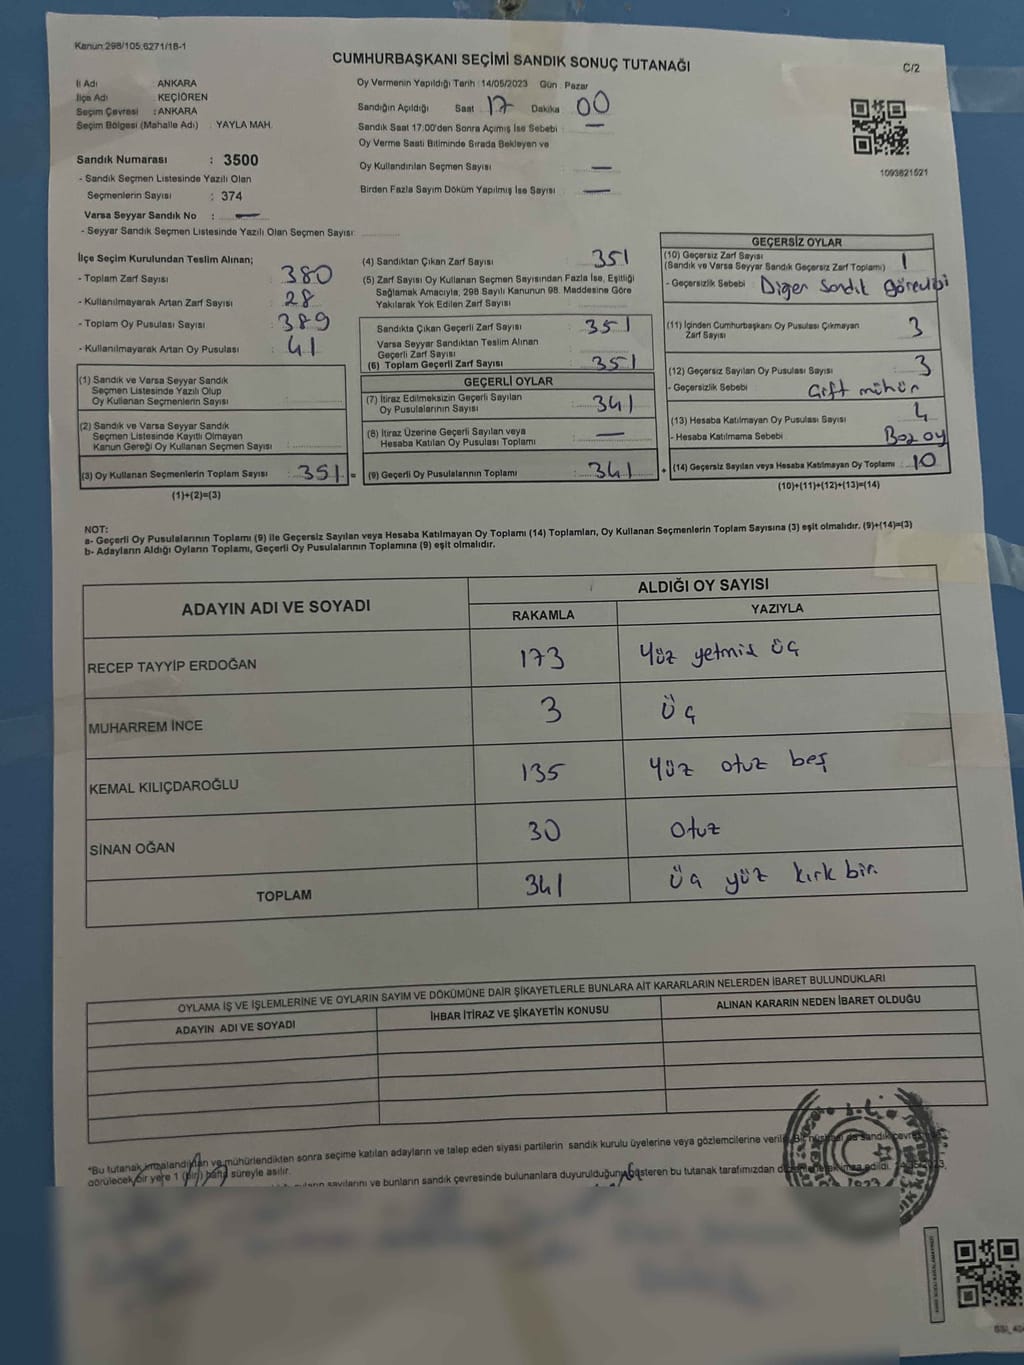 Kanun:298/105,6271/18-1
CUMHURBAŞKANI SEÇİMİ SANDIK SONUÇ TUTANAĞI
C/2
İl Adı : ANKARA
İlçe Adı : KEÇİÖREN
Seçim Çevresi : ANKARA
Seçim Bölgesi (Mahalle Adı) : YAYLA MAH.
Sandık Numarası : 3500
- Sandık Seçmen Listesinde Yazılı Olan
Seçmenlerin Sayısı : 374
Varsa Seyyar Sandık No : —
- Seyyar Sandık Seçmen Listesinde Yazılı Olan Seçmen Sayısı:
Oy Vermenin Yapıldığı Tarih : 14/05/2023 Gün : Pazar
Sandığın Açıldığı Saat 17 Dakika 00
Sandık Saat 17:00'den Sonra Açımış İse Sebebi : —
Oy Verme Saati Bitiminde Sırada Bekleyen ve
Oy Kullandırılan Seçmen Sayısı : —
Birden Fazla Sayım Döküm Yapılmış İse Sayısı : —
1093821521
İlçe Seçim Kurulundan Teslim Alınan;
- Toplam Zarf Sayısı : 380
- Kullanılmayarak Artan Zarf Sayısı : 28
- Toplam Oy Pusulası Sayısı : 389
- Kullanılmayarak Artan Oy Pusulası : 41
(1) Sandık ve Varsa Seyyar Sandık
Seçmen Listesinde Yazılı Olup
Oy Kullanan Seçmenlerin Sayısı :
(2) Sandık ve Varsa Seyyar Sandık
Seçmen Listesinde Kayıtlı Olmayan
Kanun Gereği Oy Kullanan Seçmen Sayısı :
(3) Oy Kullanan Seçmenlerin Toplam Sayısı : 351 =
(1)+(2)=(3)
(4) Sandıktan Çıkan Zarf Sayısı : 351
(5) Zarf Sayısı Oy Kullanan Seçmen Sayısından Fazla İse, Eşitliği
Sağlamak Amacıyla, 298 Sayılı Kanunun 98. Maddesine Göre
Yakılarak Yok Edilen Zarf Sayısı :
Sandıkta Çıkan Geçerli Zarf Sayısı : 351
Varsa Seyyar Sandıktan Teslim Alınan
Geçerli Zarf Sayısı :
(6) Toplam Geçerli Zarf Sayısı : 351
GEÇERLİ OYLAR
(7) İtiraz Edilmeksizin Geçerli Sayılan
Oy Pusulalarının Sayısı : 341
(8) İtiraz Üzerine Geçerli Sayılan veya
Hesaba Katılan Oy Pusulası Toplamı : —
(9) Geçerli Oy Pusulalarının Toplamı : 341 +
GEÇERSİZ OYLAR
(10) Geçersiz Zarf Sayısı
(Sandık ve Varsa Seyyar Sandık Geçersiz Zarf Toplamı) : 1
- Geçersizlik Sebebi : Diğer Sandık görevlisi
(11) İçinden Cumhurbaşkanı Oy Pusulası Çıkmayan
Zarf Sayısı : 3
(12) Geçersiz Sayılan Oy Pusulası Sayısı : 3
- Geçersizlik Sebebi : Çift mühür
(13) Hesaba Katılmayan Oy Pusulası Sayısı : 4
- Hesaba Katılmama Sebebi : Boz oy
(14) Geçersiz Sayılan veya Hesaba Katılmayan Oy Toplamı : 10
(10)+(11)+(12)+(13)=(14)
NOT:
a- Geçerli Oy Pusulalarının Toplamı (9) ile Geçersiz Sayılan veya Hesaba Katılmayan Oy Toplamı (14) Toplamları, Oy Kullanan Seçmenlerin Toplam Sayısına (3) eşit olmalıdır. (9)+(14)=(3)
b- Adayların Aldığı Oyların Toplamı, Geçerli Oy Pusulalarının Toplamına (9) eşit olmalıdır.
ADAYIN ADI VE SOYADI
ALDIĞI OY SAYISI
RAKAMLA YAZIYLA
RECEP TAYYİP ERDOĞAN 173 Yüz yetmiş üç
MUHARREM İNCE 3 Üç
KEMAL KILIÇDAROĞLU 135 Yüz otuz beş
SİNAN OĞAN 30 Otuz
TOPLAM 341 Üç yüz kırk bir
OYLAMA İŞ VE İŞLEMLERİNE VE OYLARIN SAYIM VE DÖKÜMÜNE DAİR ŞİKAYETLERLE BUNLARA AİT KARARLARIN NELERDEN İBARET BULUNDUKLARI
ADAYIN ADI VE SOYADI İHBAR İTİRAZ VE ŞİKAYETİN KONUSU ALINAN KARARIN NEDEN İBARET OLDUĞU
*Bu tutanak imzalandıktan ve mühürlendikten sonra seçime katılan adayların ve talep eden siyasi partilerin sandık kurulu üyelerine veya gözlemcilerine verilir. Bir nüshası da sandık
görülecek bir yere 1 (bir) hafta süreyle asılır.
sayılarını ve bunların sandık çevresinde bulunanlara duyurulduğunu gösteren bu tutanak tarafımızdan düzenlenerek imza edildi.
1923